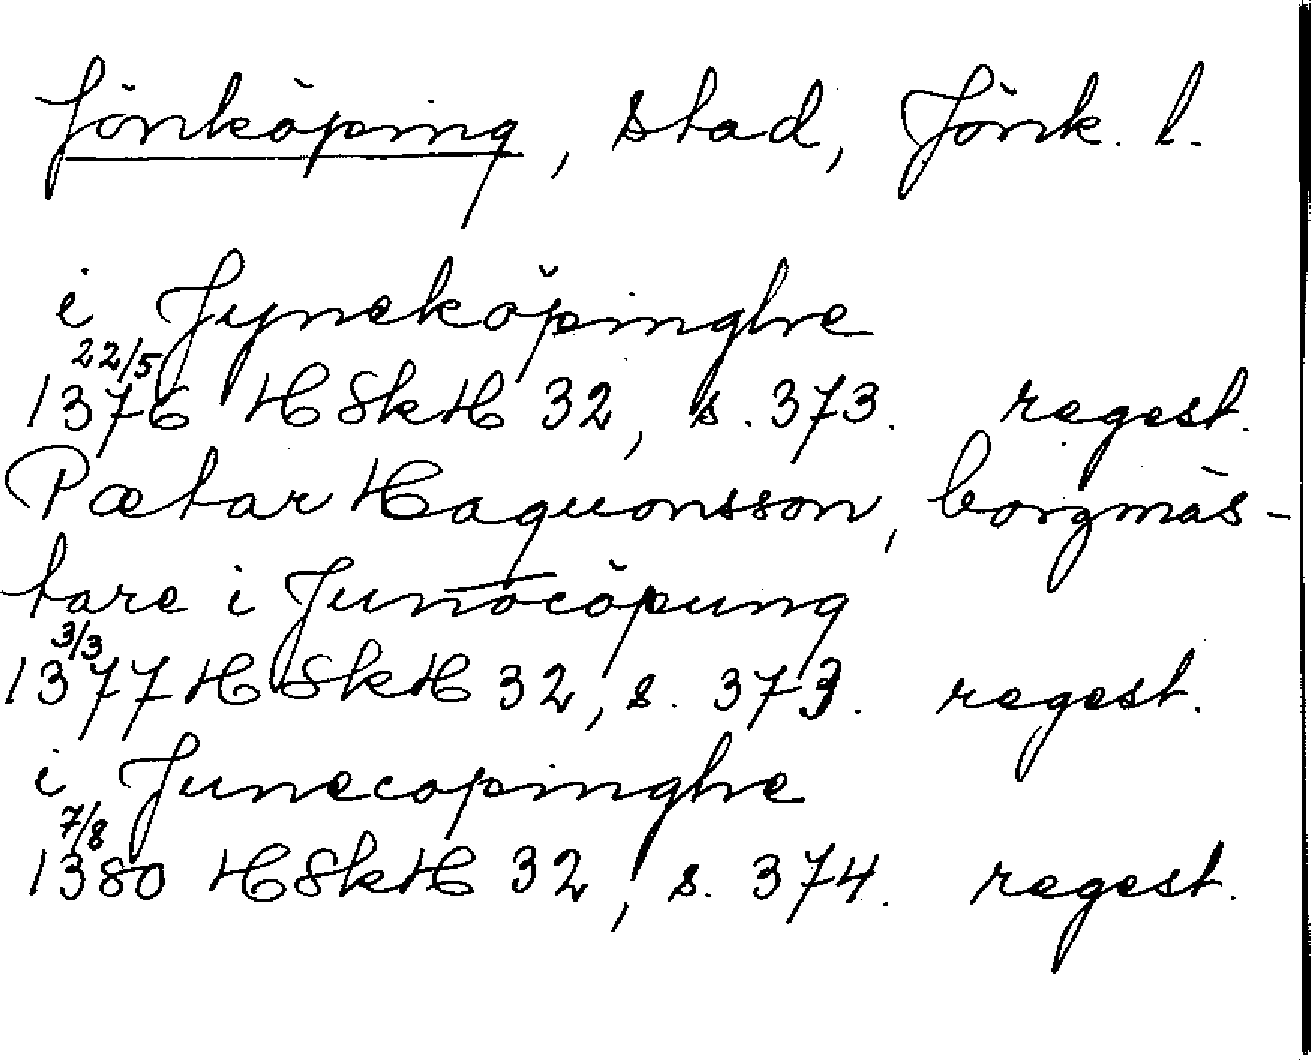 Jönköping, stad, Jönk. l.
i Jyneköpinghe
22/5
1376 HSkH 32, s. 373. regest.
Pætar Haquonsson, borgmäs-
tare i Junocöpung
3/3
1377 HSkH 32, s. 373. regest.
i Junecopinghe
7/8
1380 HSkH 32, s. 374. regest.